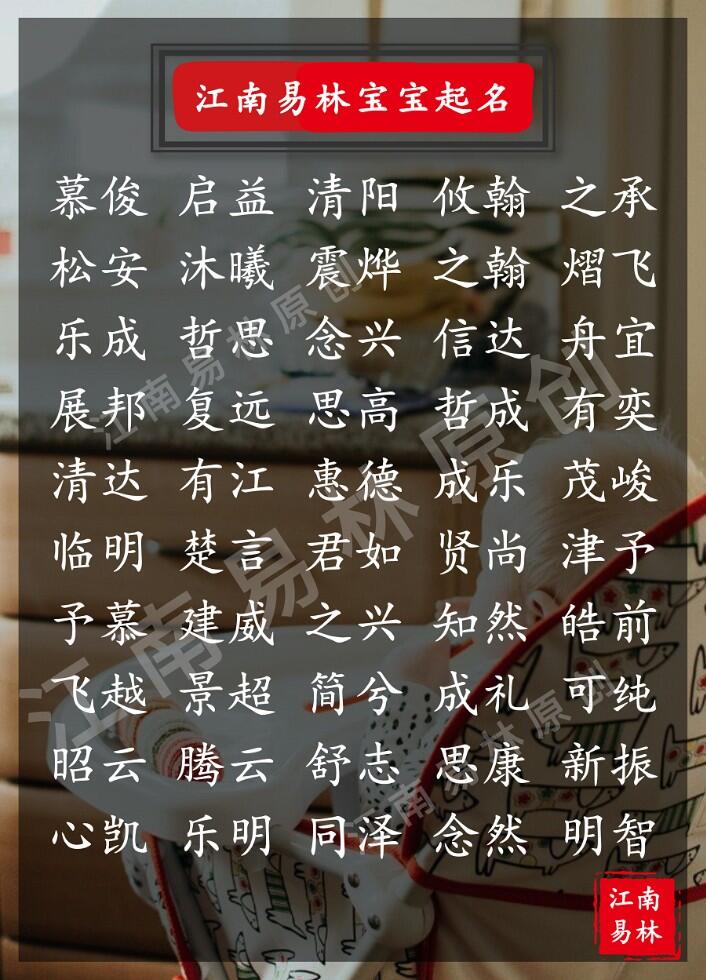 江南易林宝宝起名
慕俊 启益 清阳 攸翰 之承
松安 沐曦 震烨 之翰 熠飞
乐成 哲思 念兴 信达 舟宜
展邦 复远 思高 哲成 有奕
清达 有江 惠德 成乐 茂峻
临明 楚言 君如 贤尚 津予
予慕 建威 之兴 知然 皓前
飞越 景超 简兮 成礼 可纯
昭云 腾云 舒志 思康 新振
心凯 乐明 同泽 念然 明智
江南易林原创
江南易林原创
江南易林原创
江南
易林